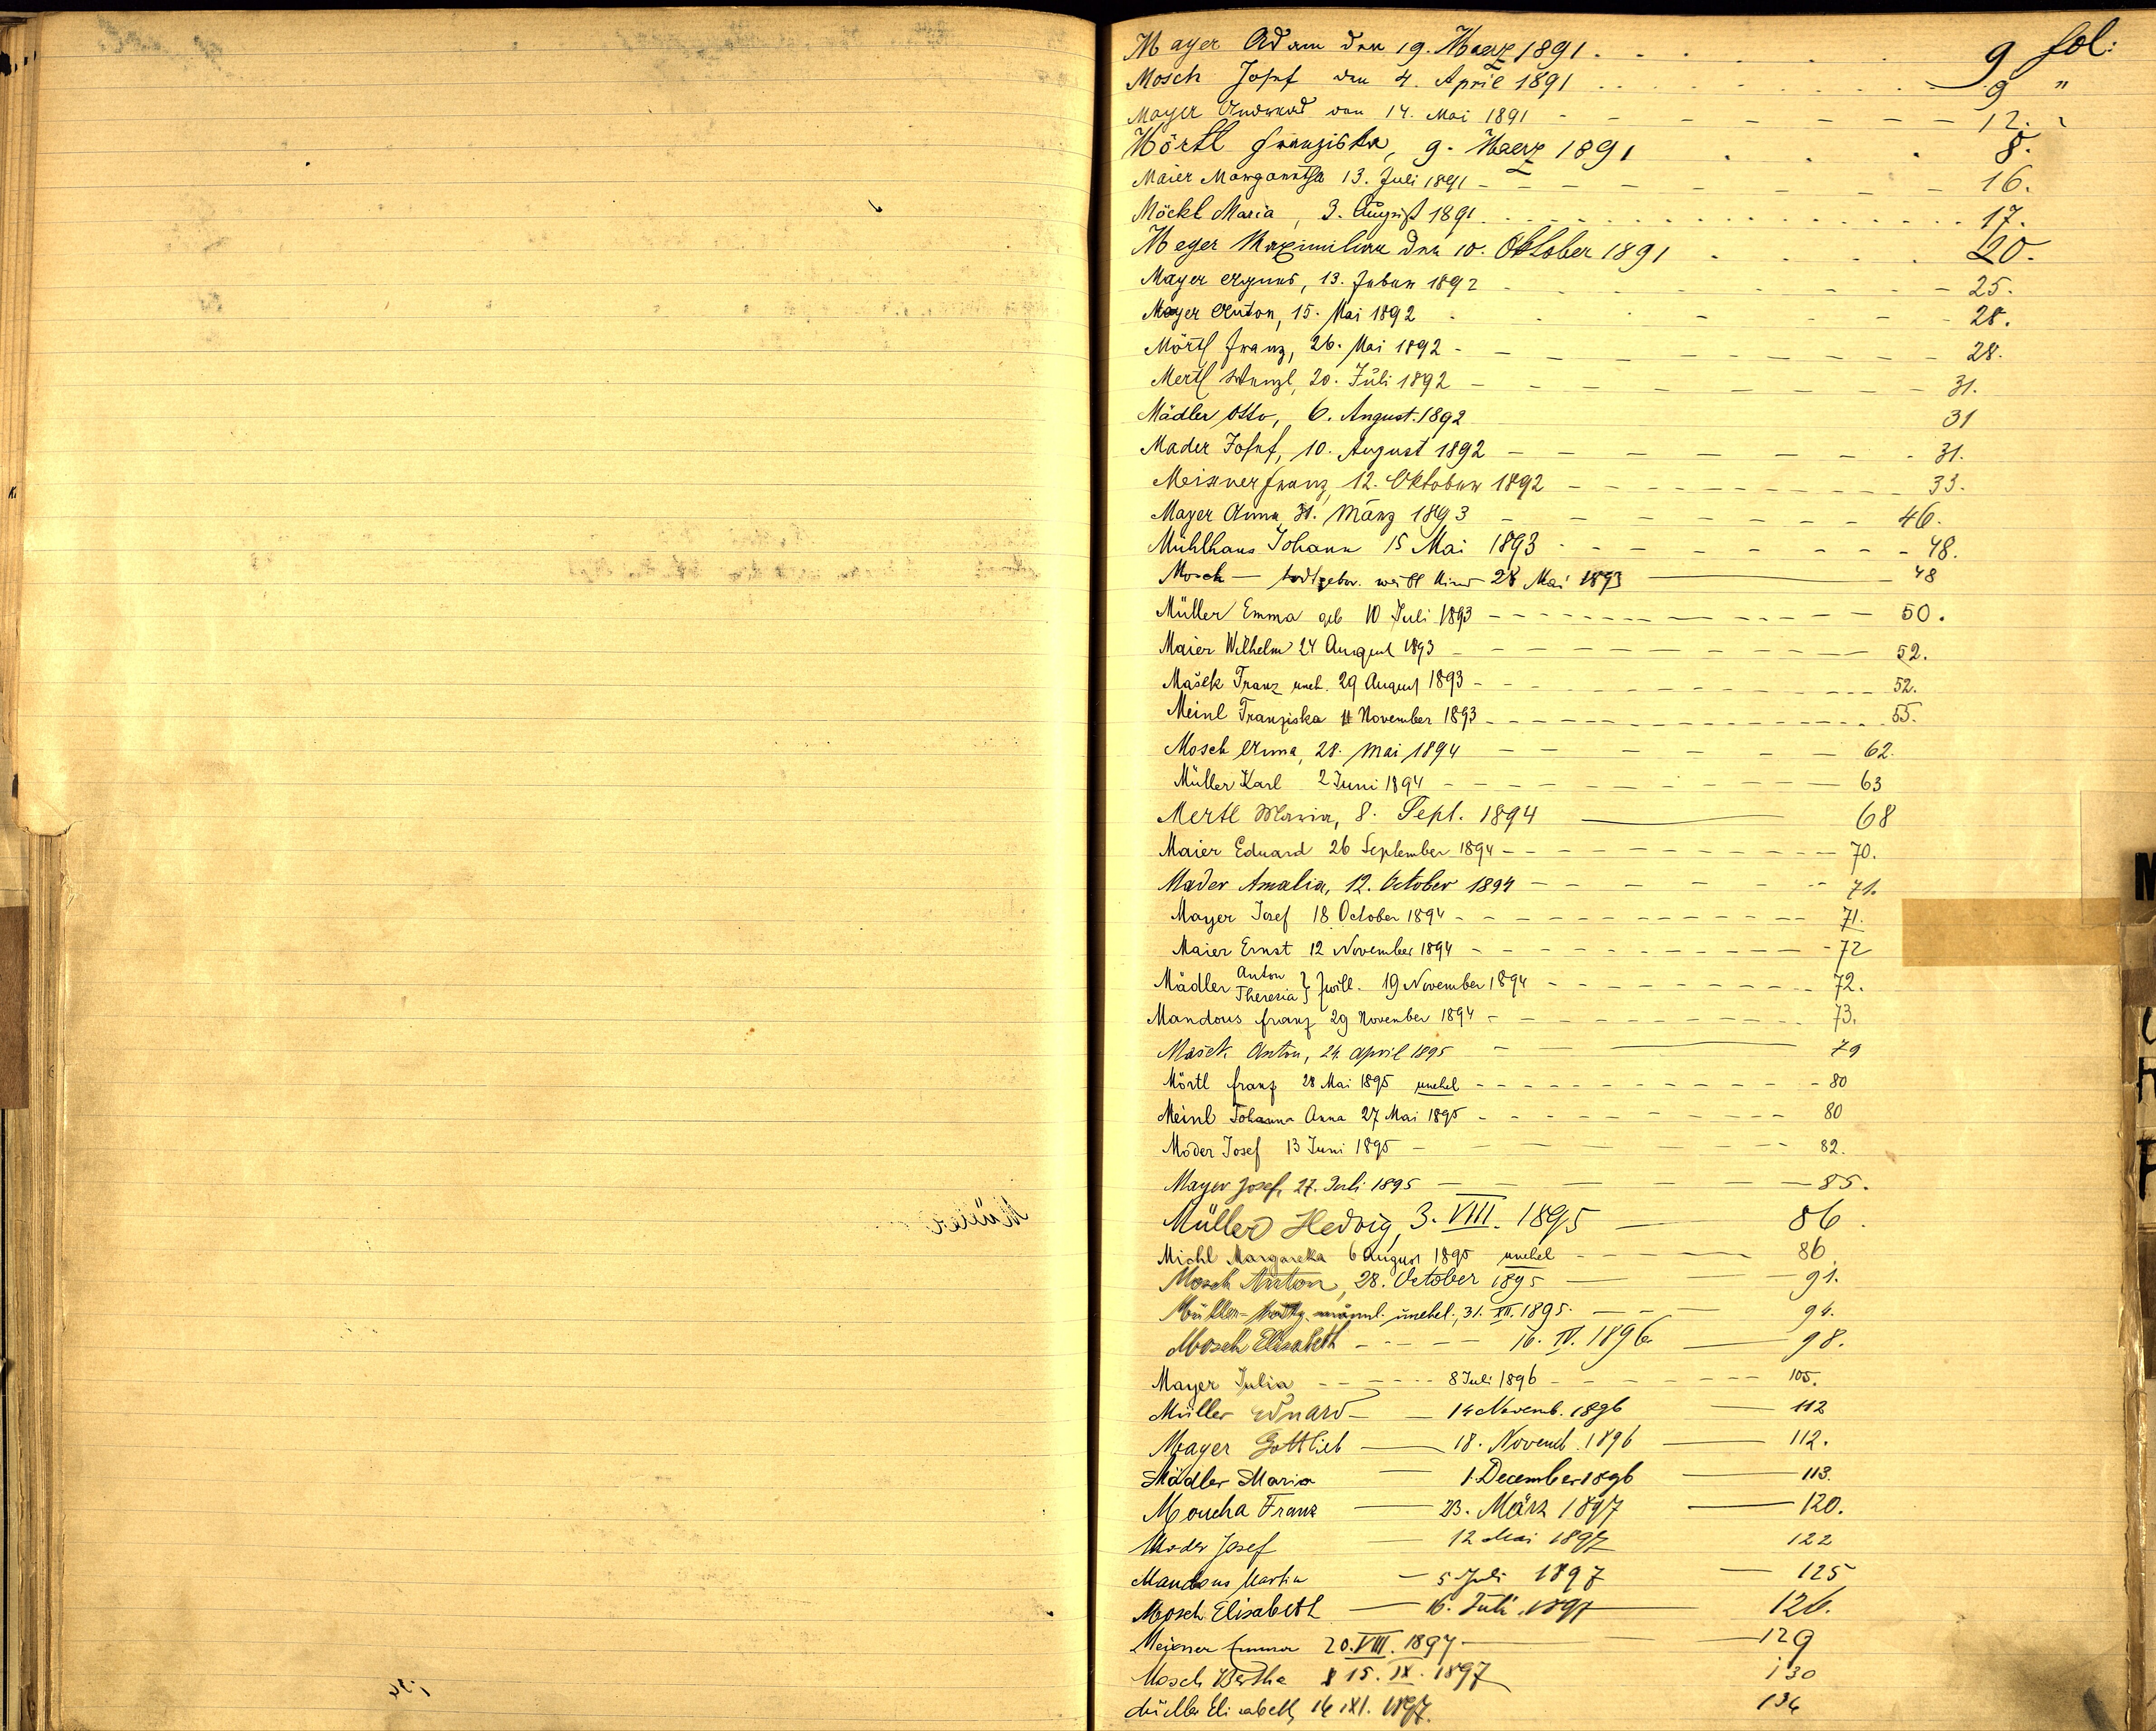 Mayer Adam den 19. Maerz 1891 9 fol:
Mosch Josef den 4. April 1891 9 "
Mayer den 14. Mai 1891 12. "
Mörtl Franziska, 9. Maerz 1891 8.
Maier Margaretha 13. Juli 1891 16.
Möckl Maria, 3. August 1891 17.
Meyer Maximilian den 10. Oktober 1891 20.
Mayer Agnes, 13. 1892 25.
Mayer Anton, 15. Mai 1892 28.
Mörtl Franz, 26. Mai 1892 28.
Mertl Wenzl, 20. Juli 1892 31.
Mädler Otto, 6. August 1892 31
Mader Josef, 10. August 1892 31.
Meixner Franz, 12. Oktober 1892 33.
Mayer Anna, 31. März 1893 46.
Mühlhans Johann 15 Mai 1893 48.
Mosch — todtgebor. weibl Kind 28 Mai 1893 48
Müller Emma geb 10 Juli 1893 50.
Maier Wilhelm 24 August 1893 52.
Mašek Franz uneh. 29 August 1893 52.
Meinl Franziska 11 November 1893 55.
Mosch Anna, 28. Mai 1894 62.
Müller Karl 2 Juni 1894 63
Mertl Maria, 8. Sept. 1894 68
Maier Eduard 26 September 1894 70.
Mader Amalia, 12. October 1894 71.
Mayer Josef 18 October 1894 71.
Maier Ernst 12 November 1894 72
Mädler Anton Theresia } Zwill. 19 November 1894 72.
Mandous Franz 29 November 1894 73.
Mašek Anton, 24. April 1895 79
Mörtl Franz 28 Mai 1895 unehel 80
Meinl Johanna Anna 27 Mai 1895 80
Moder Josef 13 Juni 1895 82.
Mayer Josef, 27. Juli 1895 85.
Müller Hedvig, 3. VIII. 1895 86.
Michl Margaretha 6 August 1895 unehel 86.
Mosch Anton, 28. October 1895 91.
Müller männl. unehel., 31. XII. 1895 94.
Mosch Elisabeth 16. IV. 1896 98.
Mayer Julia 8 Juli 1896 105.
Müller Eduard 14 Novemb. 1896 112
Mayer Gottlieb 18. Novemb. 1896 112.
Mädler Maria 1. December 1896 113.
Moucha Franz 23. März 1897 120.
Moder Josef 12 Mai 1897 122
Mandous Martin 5 Juli 1897 125
Mosch Elisabeth 16. Juli 1897 126.
Meixner Emma 20. VIII. 1897 129
Mosch Bertha 15. IX. 1897 130
Müller Elisabeth, 14 XI. 1897. 134